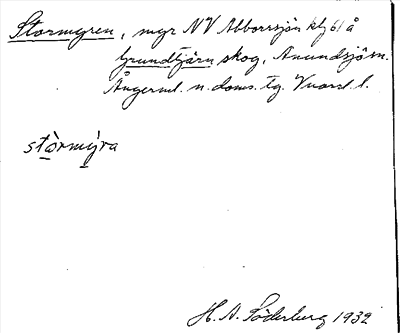 Stormyren, myr NV Abborrsjön klj 61 å
Grundtjärn skog, Anundsjö sn.
Ångerml. n. doms. tg. Vnorrl. l.
stòrmýra
H. A. Söderberg 1932